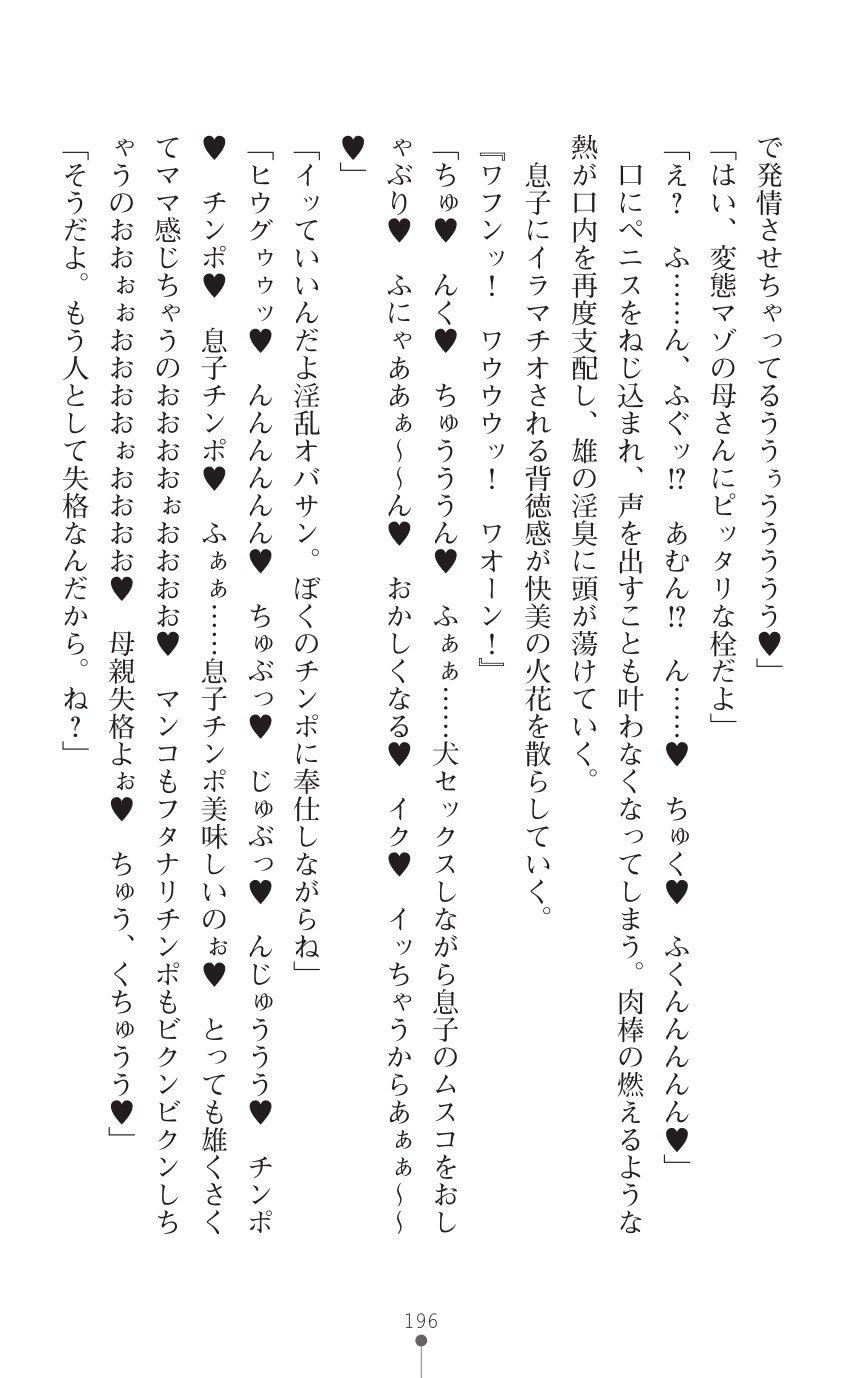 で発情させちゃってるううぅうううう♥」
「はい、変態マゾの母さんにピッタリな栓だよ」
「え？　ふ……ん、ふぐッ!?　あむん!?　ん……♥　ちゅく♥　ふくんんんん♥」
　口にペニスをねじ込まれ、声を出すことも叶わなくなってしまう。肉棒の燃えるような
熱が口内を再度支配し、雄の淫臭に頭が蕩けていく。
　息子にイラマチオされる背徳感が快美の火花を散らしていく。
『ワフンッ！　ワウウウッ！　ワオーン！』
「ちゅ♥　んく♥　ちゅううん♥　ふぁぁ……犬セックスしながら息子のムスコをおし
ゃぶり♥　ふにゃああぁ～～ん♥　おかしくなる♥　イク♥　イッちゃうからあぁぁ～～
♥」
「イッていいんだよ淫乱オバサン。ぼくのチンポに奉仕しながらね」
「ヒウグゥゥッ♥　んんんんんん♥　ちゅぶっ♥　じゅぶっ♥　んじゅううう♥　チンポ
♥　チンポ♥　息子チンポ♥　ふぁぁ……息子チンポ美味しいのぉ♥　とっても雄くさく
てママ感じちゃうのおおおおぉおおおお♥　マンコもフタナリチンポもビクンビクンしち
ゃうのおおぉぉおおおおぉおおおお♥　母親失格よぉ♥　ちゅう、くちゅうう♥」
「そうだよ。もう人として失格なんだから。ね？」
196